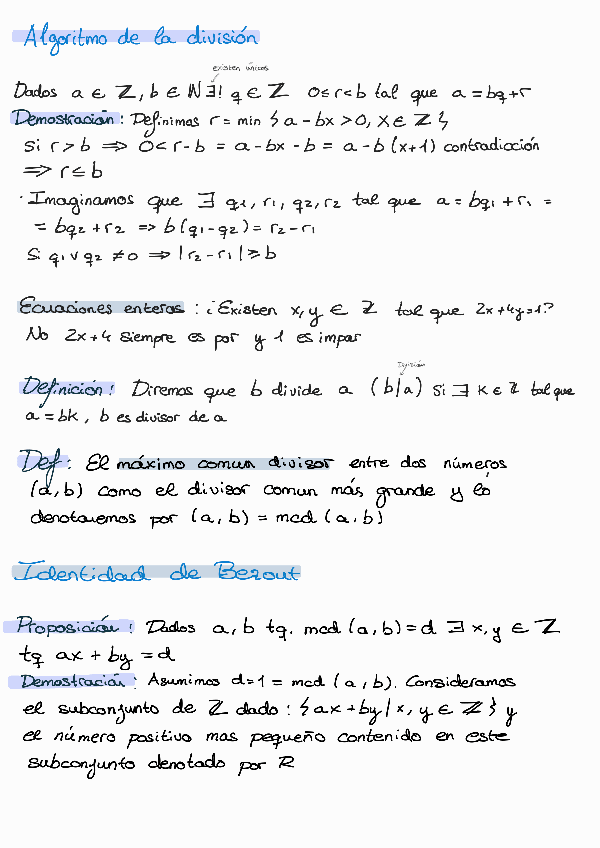 Algoritmo de la división
existen únicos
Dados a ∈ ℤ, b ∈ ℕ ∃! q ∈ ℤ 0≤r<b tal que a = bq+r
Demostración: Definimos r = min { a - bx >0, x ∈ ℤ }
Si r > b ⟹ 0< r-b = a - bx - b = a - b(x+1) contradicción
⟹ r ≤ b
· Imaginamos que ∃ q1, r1, q2, r2 tal que a = bq1 + r1 =
= bq2 + r2 => b(q1-q2) = r2 - r1
Si q1 ∨ q2 ≠ 0 ⟹ |r2 - r1| > b
Ecuaciones enteras: ¿Existen x, y ∈ ℤ tal que 2x+4y=1?
No 2x+4 siempre es par y 1 es impar
División
Definición: Diremos que b divide a (b|a) Si ∃ K ∈ ℤ tal que
a = bk, b es divisor de a
Def: El máximo comun divisor entre dos números
(a,b) como el divisor comun más grande y lo
denotaremos por (a,b) = mcd (a,b)
Identidad de Bezout
Proposición: Dados a, b tq. mcd (a,b) = d ∃ x, y ∈ ℤ
tq ax + by = d
Demostración: Asumimos d=1 = mcd (a,b). Consideramos
el subconjunto de ℤ dado: { ax + by | x, y ∈ ℤ } y
el número positivo mas pequeño contenido en este
subconjunto denotado por R